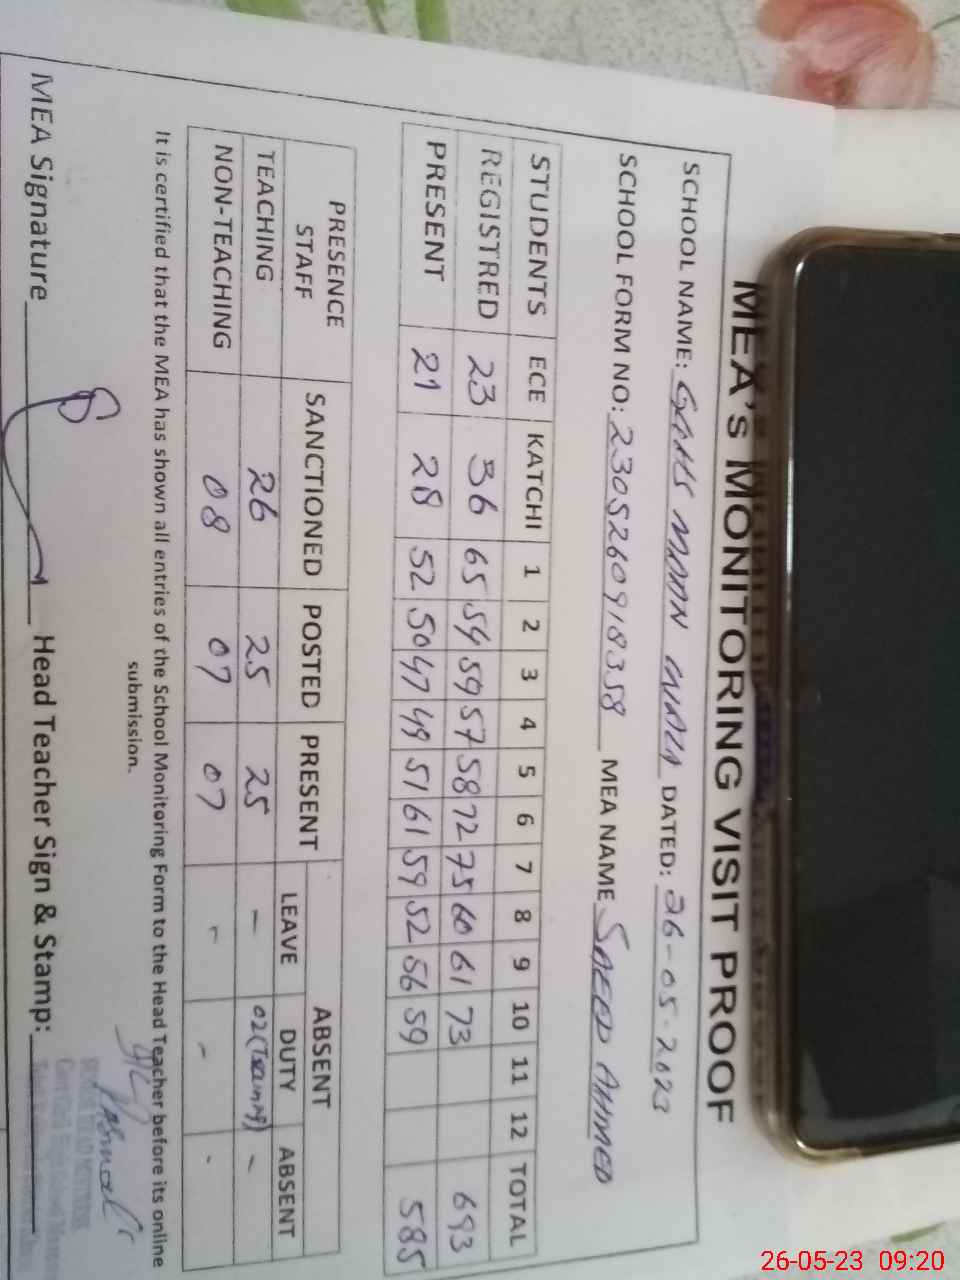 MEA's MONITORING VISIT PROOF
SCHOOL NAME: GGHS MOON WALA DATED: 26-05-2023
SCHOOL FORM NO: 2305260918358 MEA NAME SAEED AHMED
STUDENTS ECE KATCHI 1 2 3 4 5 6 7 8 9 10 11 12 TOTAL
REGISTRED 23 36 65 54 59 57 58 72 75 60 61 73 693
PRESENT 21 28 52 50 47 49 51 61 59 52 56 59 585
PRESENCE STAFF SANCTIONED POSTED PRESENT ABSENT
LEAVE DUTY ABSENT
TEACHING 26 25 25 - 02(Training) -
NON-TEACHING 08 07 07 - - -
It is certified that the MEA has shown all entries of the School Monitoring Form to the Head Teacher before its online
submission.
MEA Signature Head Teacher Sign & Stamp:
26-05-23 09:20